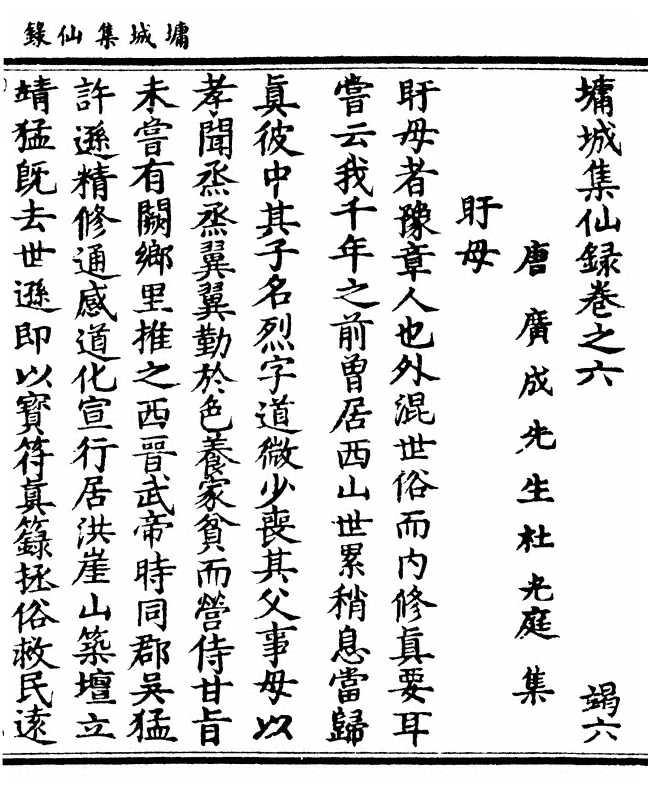 墉城集仙錄
墉城集仙録卷之六
竭六
唐廣成先生杜光庭集
盱母
盱母者豫章人也外混世俗而内修真要耳
嘗云我千年之前曾居西山世累稍息當歸
真彼中其子名烈字道微少喪其父事母以
孝聞烝烝翼翼勤於色養家貧而營侍甘旨
未嘗有闕鄉里推之西晉武帝時同郡吳猛
許遜精修通感道化宣行居洪崖山築壇立
靖猛既去世遜即以寶符真籙拯俗救民遠